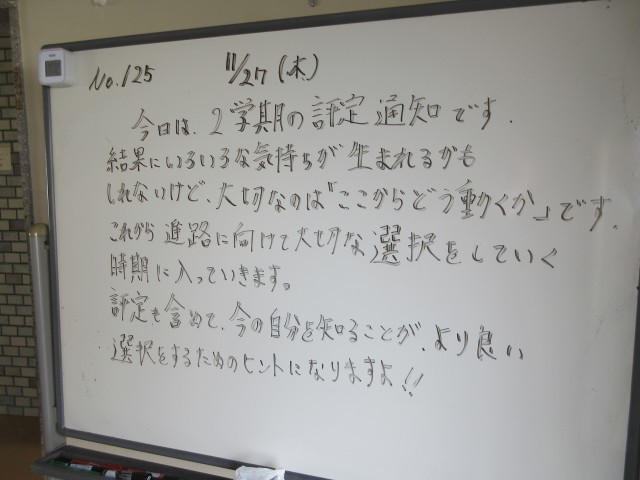 No.125 11/27 (木)
今日は、2学期の評定通知です.
結果にいろいろな気持ちが生まれるかも
しれないけど、大切なのは「ここからどう動くか」です.
これから進路に向けて大切な選択をしていく
時期に入っていきます。
評定も含めて、今の自分を知ることが、より良い
選択をするためのヒントになりますよ!!